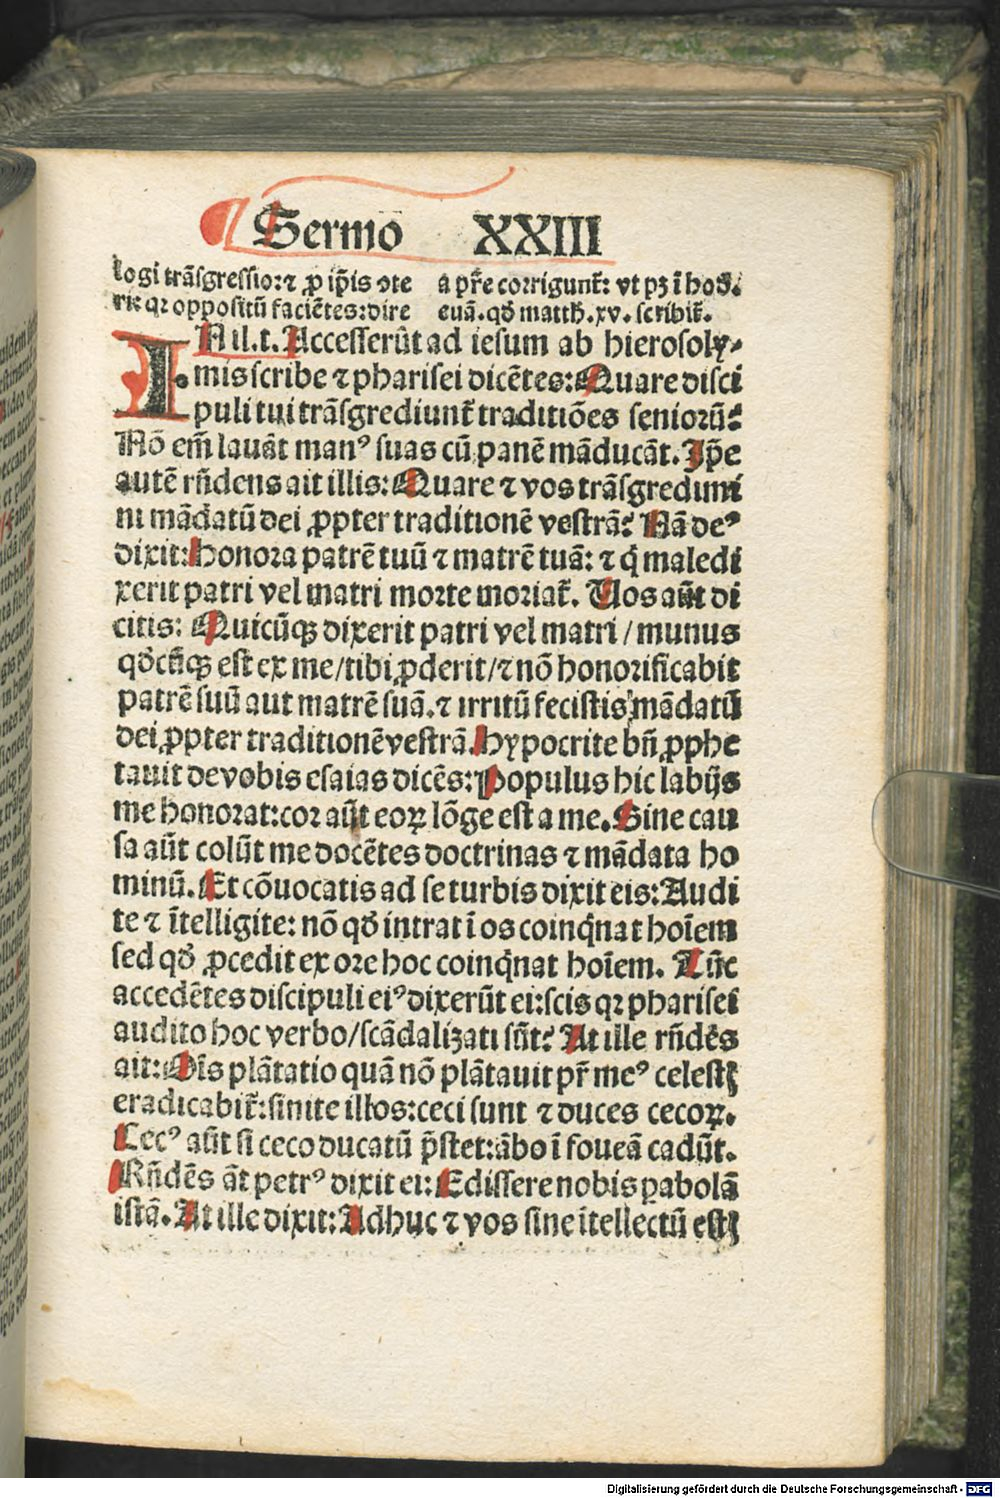 Sermo XXIII
logi trãſgreſſio:ꝛ ꝓ ip̃is ɔte
rit qꝛ oppoſitũ faciẽtes:dire
a pr̃e corrigunt̃: vt pꝫ ĩ hoď.
euã. qď matth. xv. ſcribit̃.
IN il.t. Acceſſerũt ad ieſum ab hieroſoly-
mis ſcribe ⁊ phariſei dicẽtes: Quare diſci
puli tui trãſgrediunt̃ traditiões ſeniorũ:
Nõ em̃ lauãt manꝰ ſuas cũ panẽ mãducãt. Ip̃e
autẽ rñdens ait illis: Quare ⁊ vos trãſgredimi
ni mãdatũ dei ꝓpter traditionẽ veſtrã? Nã deꝰ
dixit: honora patrẽ tuũ ⁊ matrẽ tuã: ⁊ q̇ maledi
xerit patri vel matri morte moriat̃. Uos aũt di
citis: Quicũqꝫ dixerit patri vel matri / munus
qďcũqꝫ eſt ex me / tibi ꝓderit / ⁊ nõ honorificabit
patrẽ ſuũ aut matrẽ ſuã. ⁊ irritũ feciſtis mãdatũ
dei ꝓpter traditionẽ veſtrã. hypocrite bñ ꝓphe
tauit de vobis eſaias dicẽs: Populus hic labijs
me honorat: cor aũt eoꝝ lõge eſt a me. Sine cau
ſa aũt colũt me docẽtes doctrinas ⁊ mãdata ho
minũ. Et cõuocatis ad ſe turbis dixit eis: Audi
te ⁊ ĩtelligite: nõ qď intrat ĩ os coinq̇nat hoĩem
ſed qď ꝓcedit ex ore hoc coinq̇nat hoĩem. Tũc
accedẽtes diſcipuli eiꝰ dixerũt ei: ſcis qꝛ phariſei
audito hoc verbo / ſcãdalizati ſũt? At ille rñdẽs
ait: Oĩs plãtatio quã nõ plãtauit pr̃ meꝰ celeſtꝭ
eradicabit̃: ſinite illos: ceci ſunt ⁊ duces cecoꝝ.
Cecꝰ aũt ſi ceco ducatũ p̃ſtet: ãbo ĩ foueã cadũt.
Rñdẽs ãt petrꝰ dixit ei: Ediſſere nobis ꝑabolã
iſtã. At ille dixit: Adhuc ⁊ vos ſine ĩtellectũ eſtꝭ
Digitalisierung gefördert durch die Deutsche Forschungsgemeinschaft - DFG